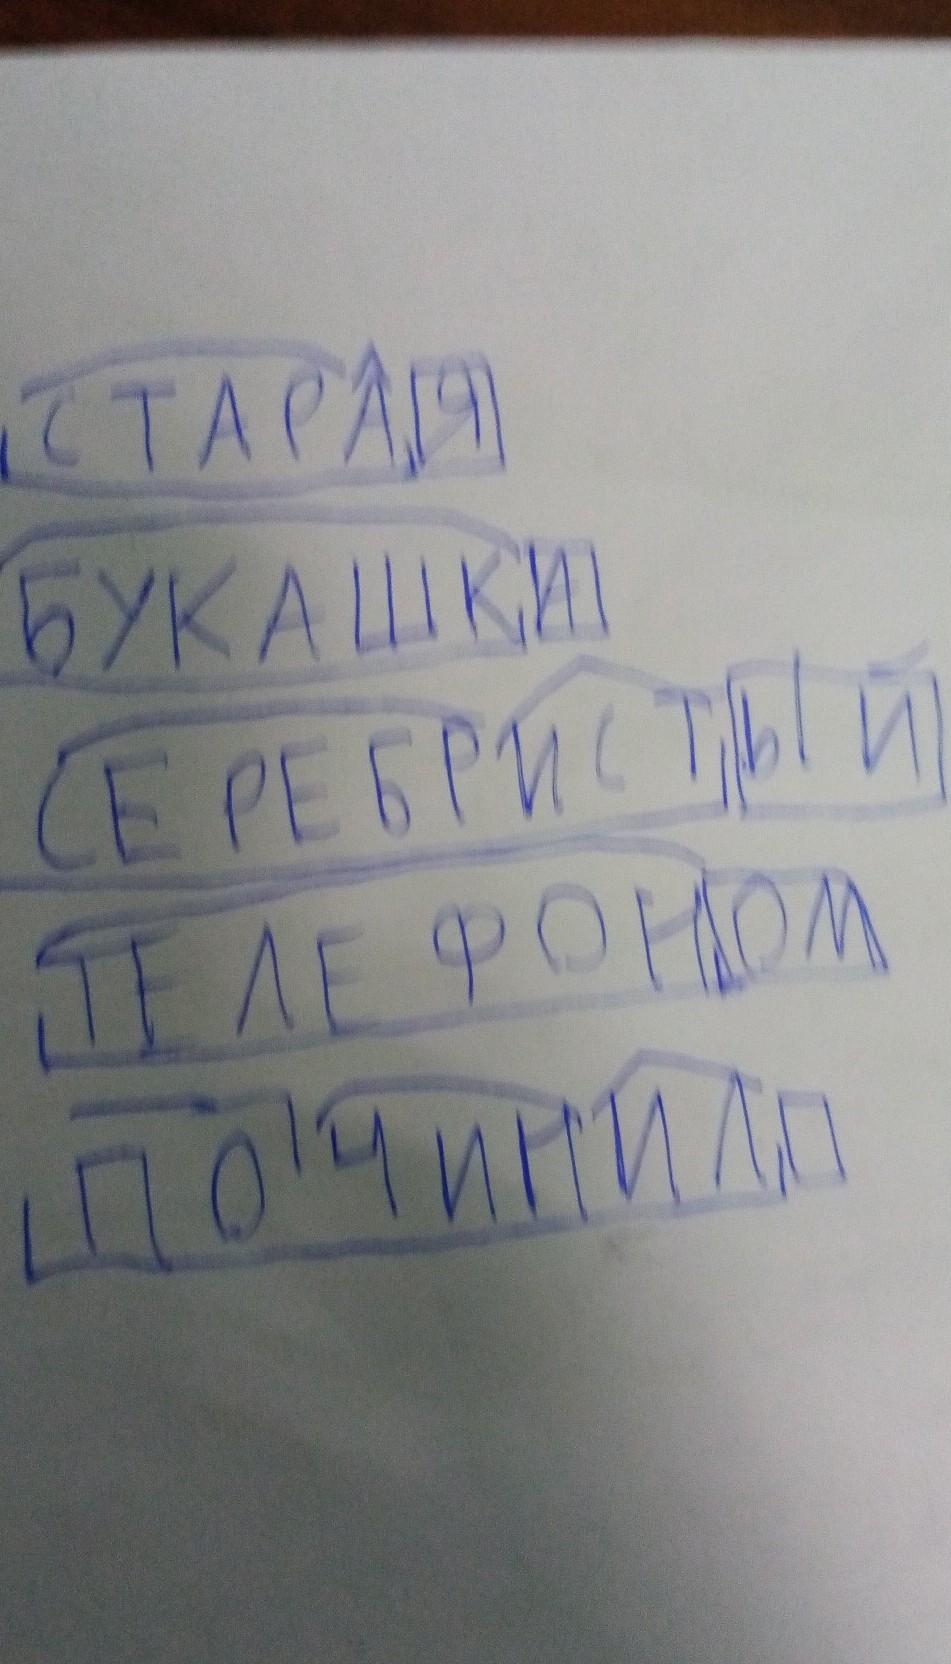 СТАРАЯ
БУКАШКИ
СЕРЕБРИСТЫЙ
ТЕЛЕФОНОМ
ПОЧИНИЛ